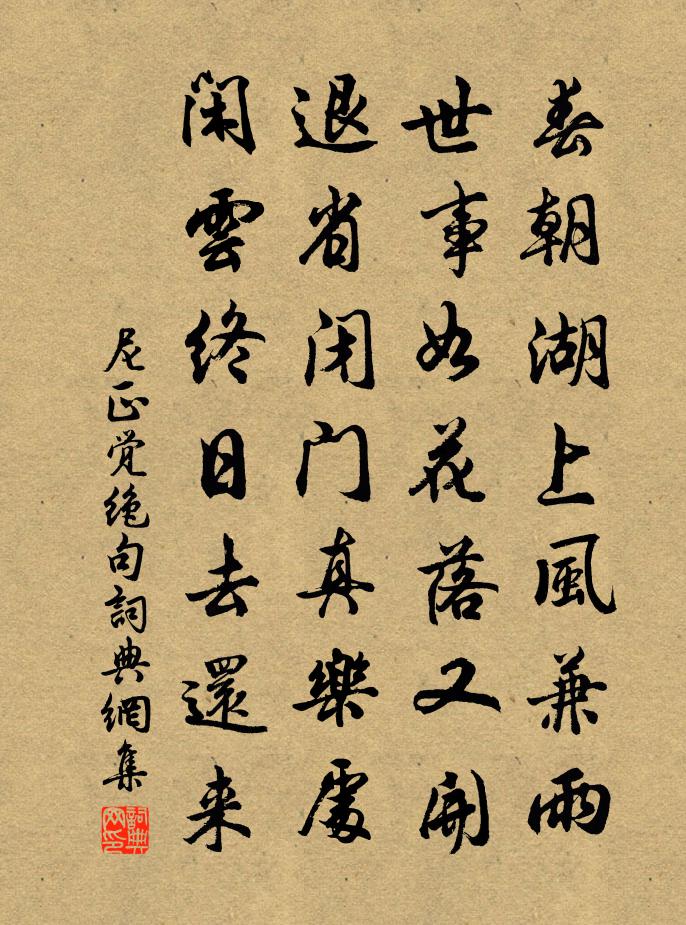 春朝湖上風兼雨
世事如花落又開
退省闭门真樂處
閑雲終日去還来
尼正觉绝句詞典網集
詞典网印